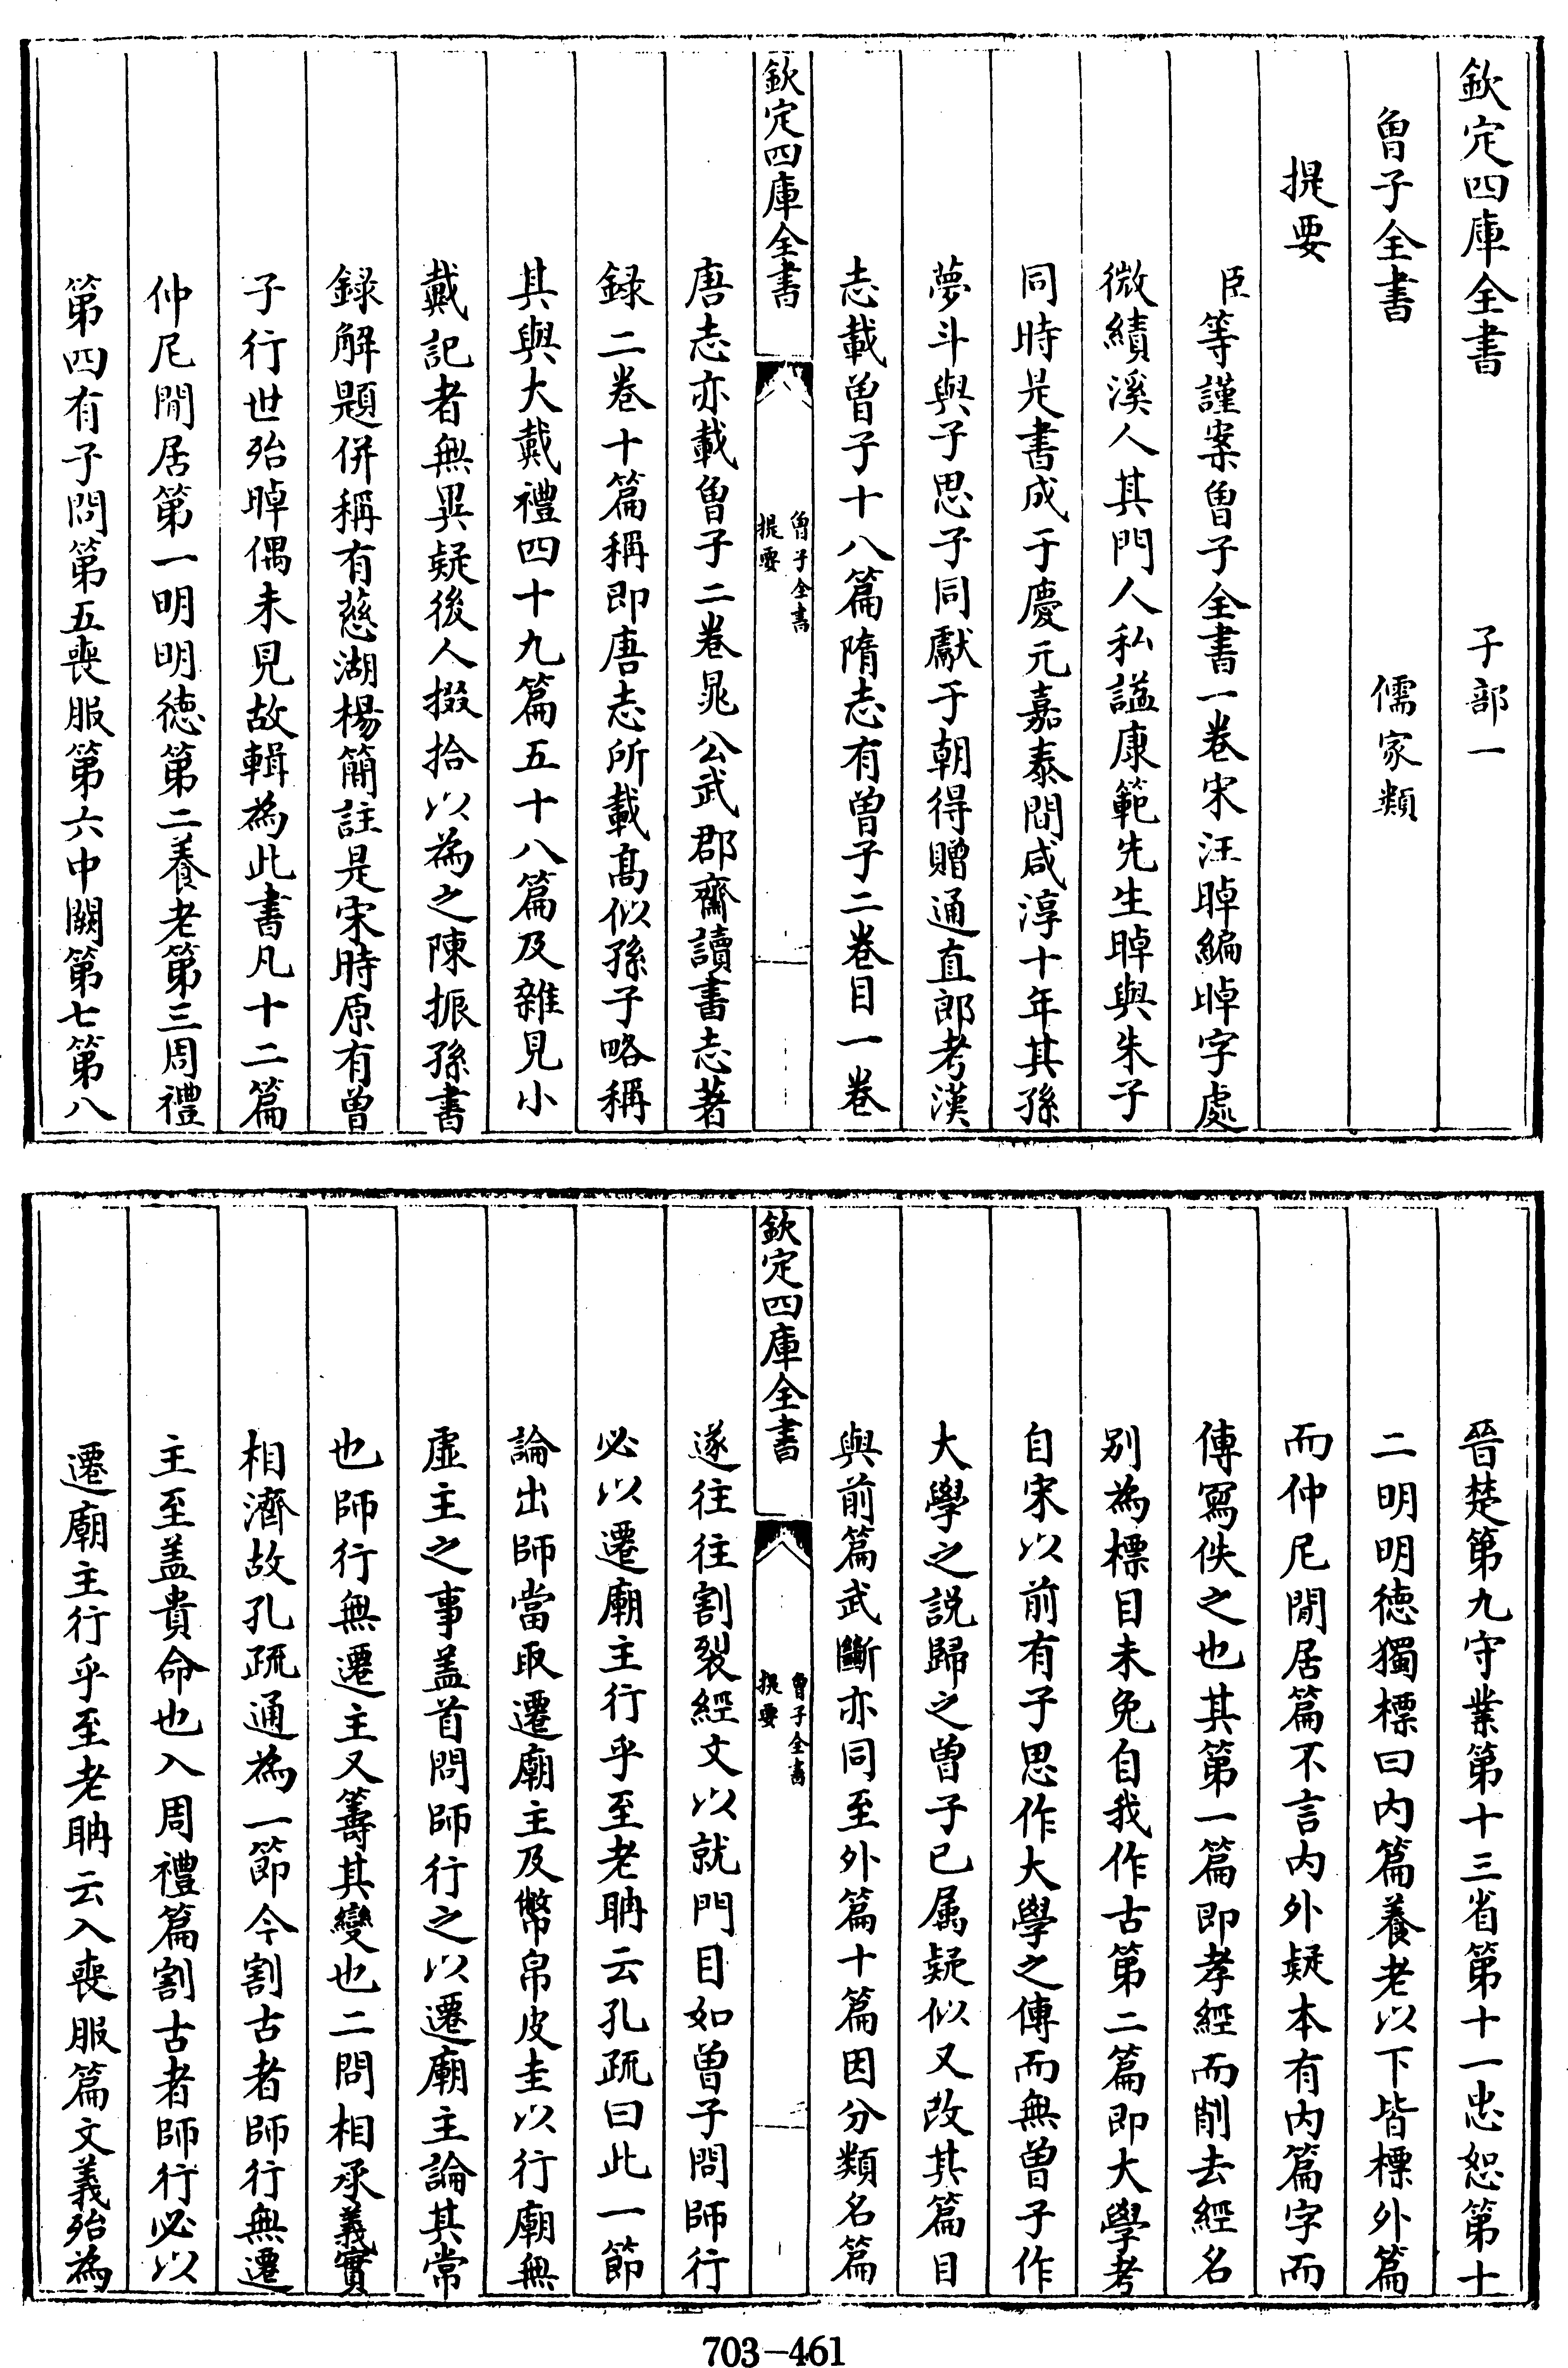 欽定四庫全書 子部一
曾子全書 儒家類
提要
臣等謹案曾子全書一卷宋汪晫編晫字處
微績溪人其門人私諡康範先生晫與朱子
同時是書成于慶元嘉泰間咸淳十年其孫
夢斗與子思子同獻于朝得贈通直郎考漢
志載曾子十八篇隋志有曾子二卷目一卷
欽定四庫全書
曾子全書
提要
唐志亦載曾子二卷晁公武郡齋讀書志著
録二卷十篇稱即唐志所載高似孫子略稱
其與大戴禮四十九篇五十八篇及雜見小
戴記者無異疑後人掇拾以為之陳振孫書
録解題併稱有慈湖楊簡註是宋時原有曾
子行世殆晫偶未見故輯為此書凡十二篇
仲尼閒居第一明明徳第二養老第三周禮
第四有子問第五喪服第六中闕第七第八
晉楚第九守業第十三省第十一忠恕第十
二明明徳獨標曰内篇養老以下皆標外篇
而仲尼閒居篇不言内外疑本有内篇字而
傳寫佚之也其第一篇即孝經而削去經名
别為標目未免自我作古第二篇即大學考
自宋以前有子思作大學之傳而無曾子作
大學之説歸之曾子已属疑似又改其篇目
與前篇武斷亦同至外篇十篇因分類名篇
欽定四庫全書
曾子全書
提要
遂往往割裂經文以就門目如曾子問師行
必以遷廟主行乎至老聃云孔疏曰此一節
論出師當取遷廟主及幣帛皮圭以行廟無
虚主之事盖首問師行之以遷廟主論其常
也師行無遷主又籌其變也二問相承義實
相濟故孔疏通為一節今割古者師行無遷
主至盖貴命也入周禮篇割古者師行必以
遷廟主行乎至老聃云入喪服篇文義殆為
703-461